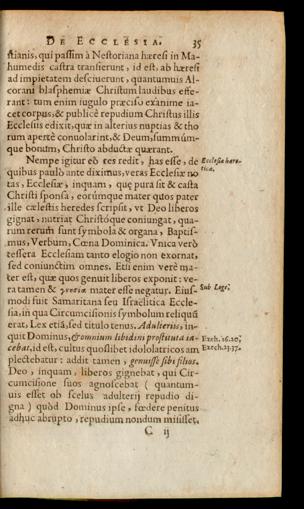 DE ECCLESIA. 35
stianis, qui passim à Nestoriana hæresi in Ma-
humedis castra transierunt, id est, ab hæresi
ad impietatem desciuerunt, quantumuis Al-
corani blasphemiæ Christum laudibus effe-
rant: tum enim iugulo præciso exanime ia-
cet corpus, & publicè repudium Christus illis
Ecclesiis edixit, quæ in alterius nuptias & tho
rum apertè conuolarint, & Deum, summum-
que bonum, Christo abductæ quærant.
Nempe igitur eò res redit, has esse, de
quibus paulò ante diximus, veras Ecclesiæ no
tas, Ecclesiæ, inquam, quę pura sit & casta
Christi sponsa, eorúmque mater quos pater
ille cælestis heredes scripsit, vt Deo liberos
gignat, nutriat Christóque coniungat, qua-
rum rerum sunt symbola & organa, Baptis-
mus, Verbum, Cœna Dominica. Vnica verò
tessera Ecclesiam tanto elogio non exornat,
sed coniunctim omnes. Etsi enim verè ma-
ter est, quæ quos genuit liberos exponit: ve-
ra tamen & γνησία mater esse negatur. Eius-
modi fuit Samaritana seu Israëlitica Eccle-
sia, in qua Circumcisionis symbolum reliquũ
erat, Lex etiã, sed titulo tenus. Adulteriis, in-
quit Dominus, & omnium libidini prostituta ia-
cebat, id est, cultus quoslibet idololatricos am
plectebatur: addit tamen, genuisse sibi filios.
Deo, inquam, liberos gignebat, qui Cir-
cumcisione suos agnoscebat (quantum-
uis esset ob scelus adulterij repudio di-
gna) quòd Dominus ipse, fœdere penitus
adhuc abrupto, repudium nondum misisset,
C ij
Ecclesiæ hære-
tica.
Sub Lege.
Ezech. 16.20.
Ezech. 23.37.